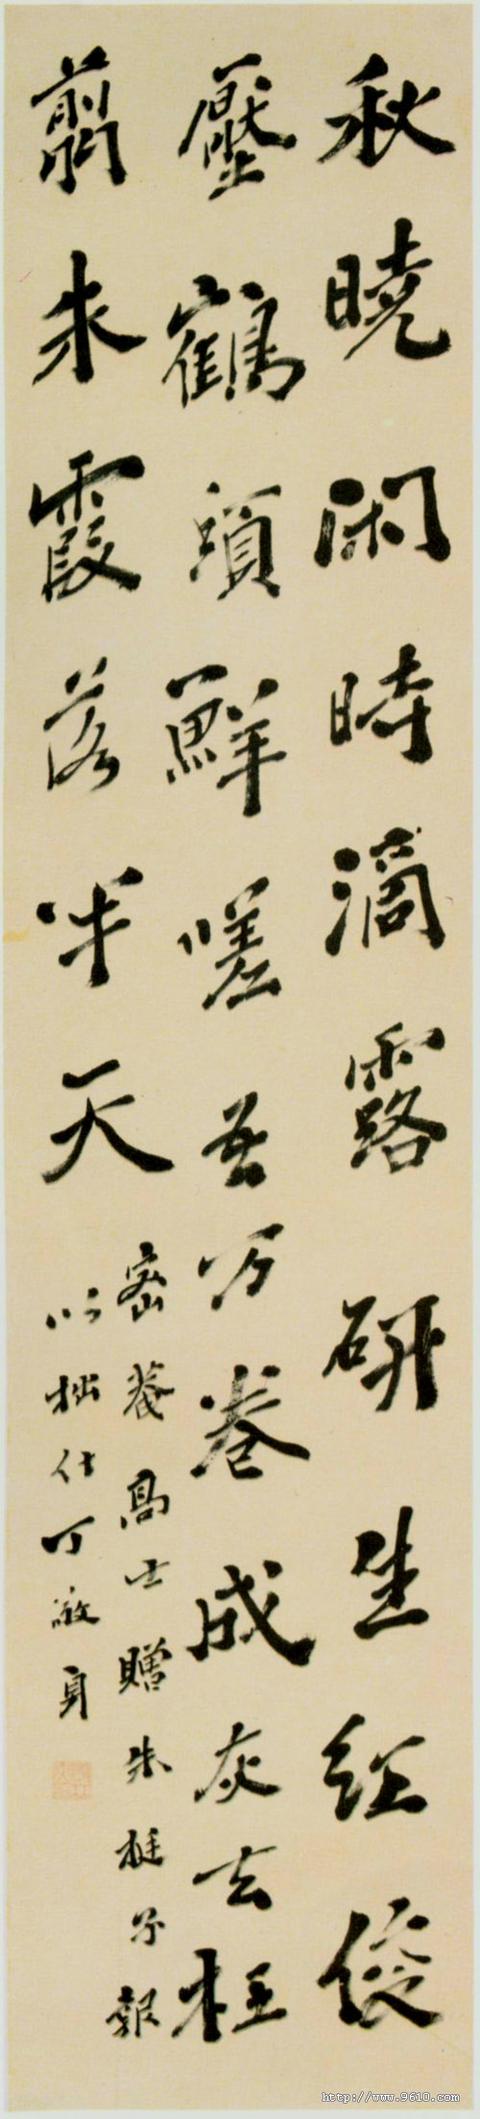 秋曉閑時滴露研生紅俊
壓鶴頂鮮嗟吾万卷成灰去枉
翦朱霞落半天
密菴高士贈朱梃子報
以拙什丁敬身
http://www.9610.com